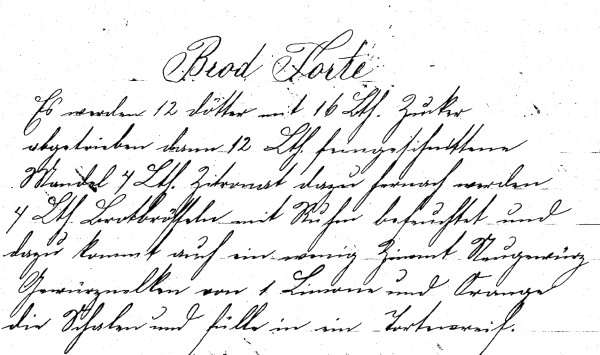 Brod Torte
Es werden 12 Dötter mit 16 Lth. Zucker
abgetrieben dann 12 Lth. feingeschnittene
Mandel 4 Lth. Zitronat dazu hernach werden
4 Lth. Brotbröseln mit Ruhm befeuchtet und
dazu kommt auch ein wenig Zimmt Neugewürz
Gewürznelken von 1 Limone und Orange
die Schalen und fülle in ein Tortenreif.